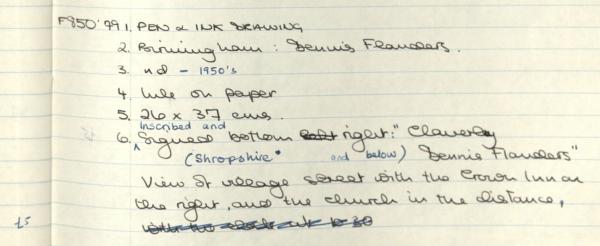 F850'99 1. PEN & INK DRAWING
2. Birmingham : Dennis Flanders.
3. nd - 1950's
4. Ink on paper
5. 26 x 37 cms.
Inscribed and
6. Signed bottom left right: "Claverley
(Shropshire" and below) Dennis Flanders"
View of village street with the Crown Inn on
the right, and the church in the distance,
£5